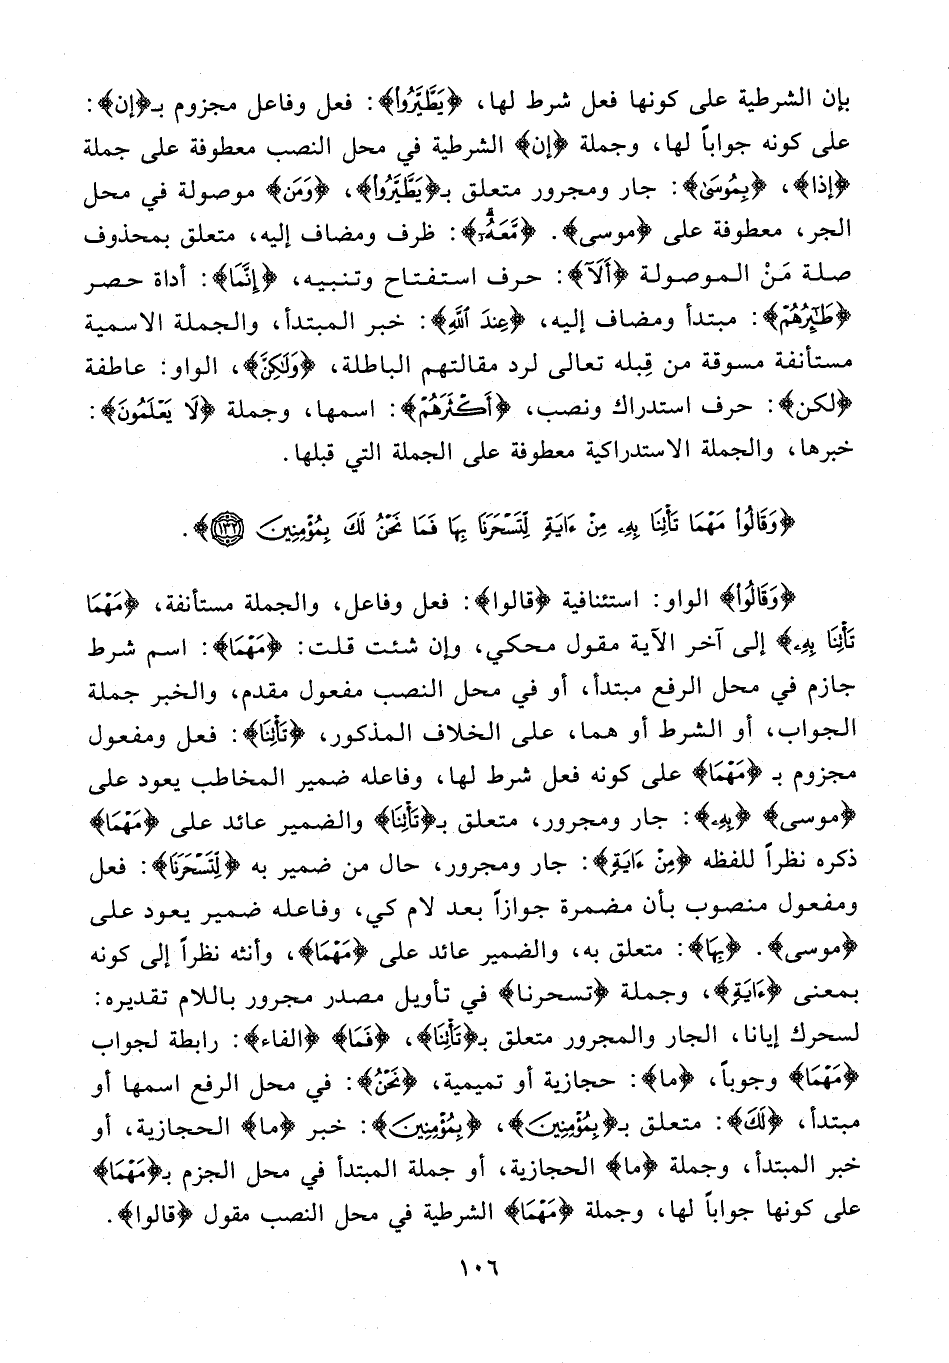 بإن الشرطية على كونها فعل شرط لها، ﴿يَطَّيَّرُوا۟﴾: فعل وفاعل مجزوم بـ﴿إن﴾:
على كونه جواباً لها، وجملة ﴿إن﴾ الشرطية في محل النصب معطوفة على جملة
﴿إذا﴾، ﴿بِمُوسَىٰ﴾: جار ومجرور متعلق بـ﴿يَطَّيَّرُوا۟﴾، ﴿وَمَن﴾ موصولة في محل
الجر، معطوفة على ﴿موسى﴾. ﴿مَّعَهُۥٓ﴾: ظرف ومضاف إليه، متعلق بمحذوف
صلة مَنْ الموصولة ﴿أَلَآ﴾: حرف استفتاح وتنبيه، ﴿إِنَّمَا﴾: أداة حصر
﴿طَٰٓئِرُهُمْ﴾: مبتدأ ومضاف إليه، ﴿عِندَ ٱللَّهِ﴾: خبر المبتدأ، والجملة الاسمية
مستأنفة مسوقة من قِبله تعالى لرد مقالتهم الباطلة، ﴿وَلَٰكِنَّ﴾، الواو: عاطفة
﴿لكن﴾: حرف استدراك ونصب، ﴿أَكْثَرَهُمْ﴾: اسمها، وجملة ﴿لَا يَعْلَمُونَ﴾:
خبرها، والجملة الاستدراكية معطوفة على الجملة التي قبلها.
﴿وَقَالُوا۟ مَهْمَا تَأْتِنَا بِهِۦ مِنْ ءَايَةٍ لِّتَسْحَرَنَا بِهَا فَمَا نَحْنُ لَكَ بِمُؤْمِنِينَ ١٣٢﴾.
﴿وَقَالُوا۟﴾ الواو: استئنافية ﴿قالوا﴾: فعل وفاعل، والجملة مستأنفة، ﴿مَهْمَا
تَأْتِنَا بِهِۦ﴾ إلى آخر الآية مقول محكي، وإن شئت قلت: ﴿مَهْمَا﴾: اسم شرط
جازم في محل الرفع مبتدأ، أو في محل النصب مفعول مقدم، والخبر جملة
الجواب، أو الشرط أو هما، على الخلاف المذكور، ﴿تَأْتِنَا﴾: فعل ومفعول
مجزوم بـ ﴿مَهْمَا﴾ على كونه فعل شرط لها، وفاعله ضمير المخاطب يعود على
﴿موسى﴾ ﴿بِهِۦ﴾: جار ومجرور، متعلق بـ﴿تَأْتِنَا﴾ والضمير عائد على ﴿مَهْمَا﴾
ذكره نظراً للفظه ﴿مِنْ ءَايَةٍ﴾: جار ومجرور، حال من ضمير به ﴿لِّتَسْحَرَنَا﴾: فعل
ومفعول منصوب بأن مضمرة جوازاً بعد لام كي، وفاعله ضمير يعود على
﴿موسى﴾. ﴿بِهَا﴾: متعلق به، والضمير عائد على ﴿مَهْمَا﴾، وأنثه نظراً إلى كونه
بمعنى ﴿ءَايَةٍ﴾، وجملة ﴿تسحرنا﴾ في تأويل مصدر مجرور باللام تقديره:
لسحرك إيانا، الجار والمجرور متعلق بـ﴿تَأْتِنَا﴾، ﴿فَمَا﴾ ﴿الفاء﴾: رابطة لجواب
﴿مَهْمَا﴾ وجوباً، ﴿ما﴾: حجازية أو تميمية، ﴿نَحْنُ﴾: في محل الرفع اسمها أو
مبتدأ، ﴿لَكَ﴾: متعلق بـ﴿بِمُؤْمِنِينَ﴾، ﴿بِمُؤْمِنِينَ﴾: خبر ﴿ما﴾ الحجازية، أو
خبر المبتدأ، وجملة ﴿ما﴾ الحجازية، أو جملة المبتدأ في محل الجزم بـ﴿مَهْمَا﴾
على كونها جواباً لها، وجملة ﴿مَهْمَا﴾ الشرطية في محل النصب مقول ﴿قالوا﴾.
١٠٦